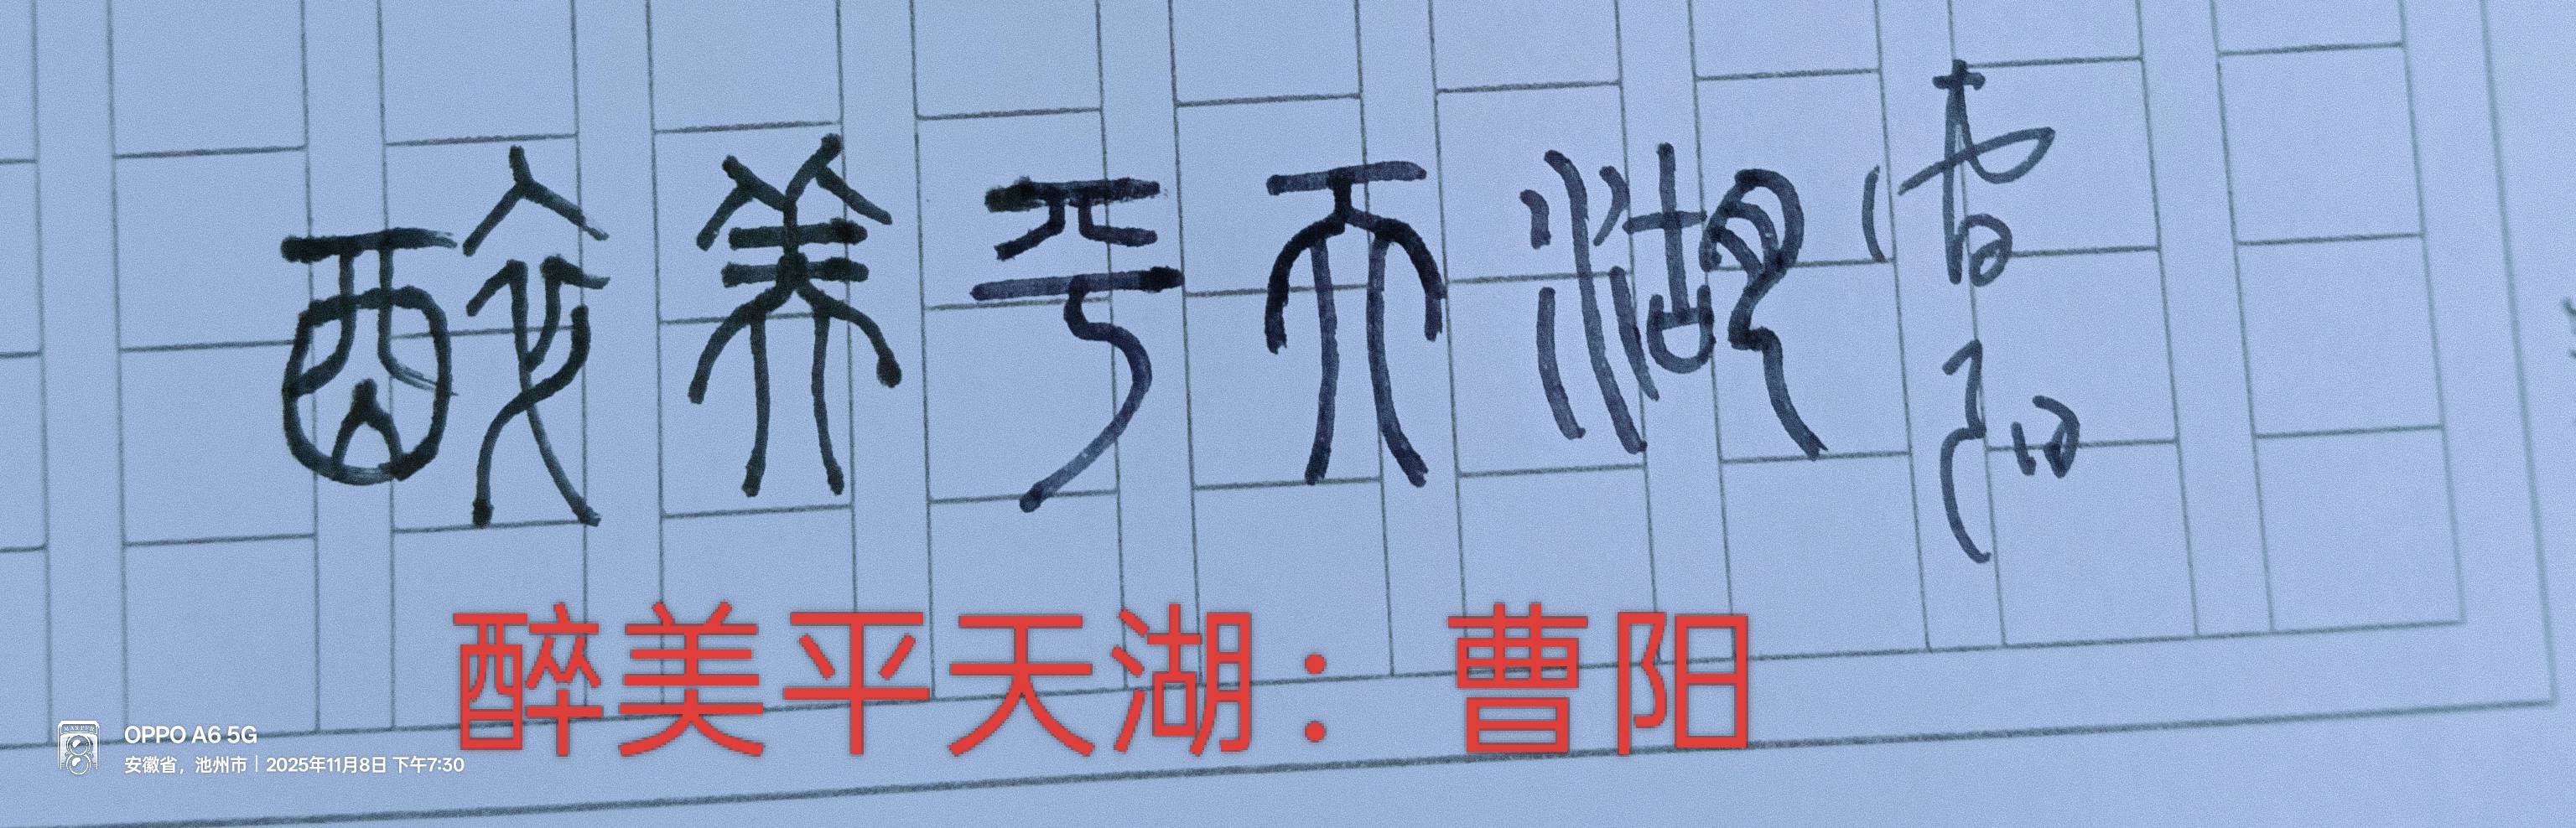 醉美平天湖
曹阳
醉美平天湖：曹阳
OPPO A6 5G
安徽省，池州市 | 2025年11月8日 下午7:30